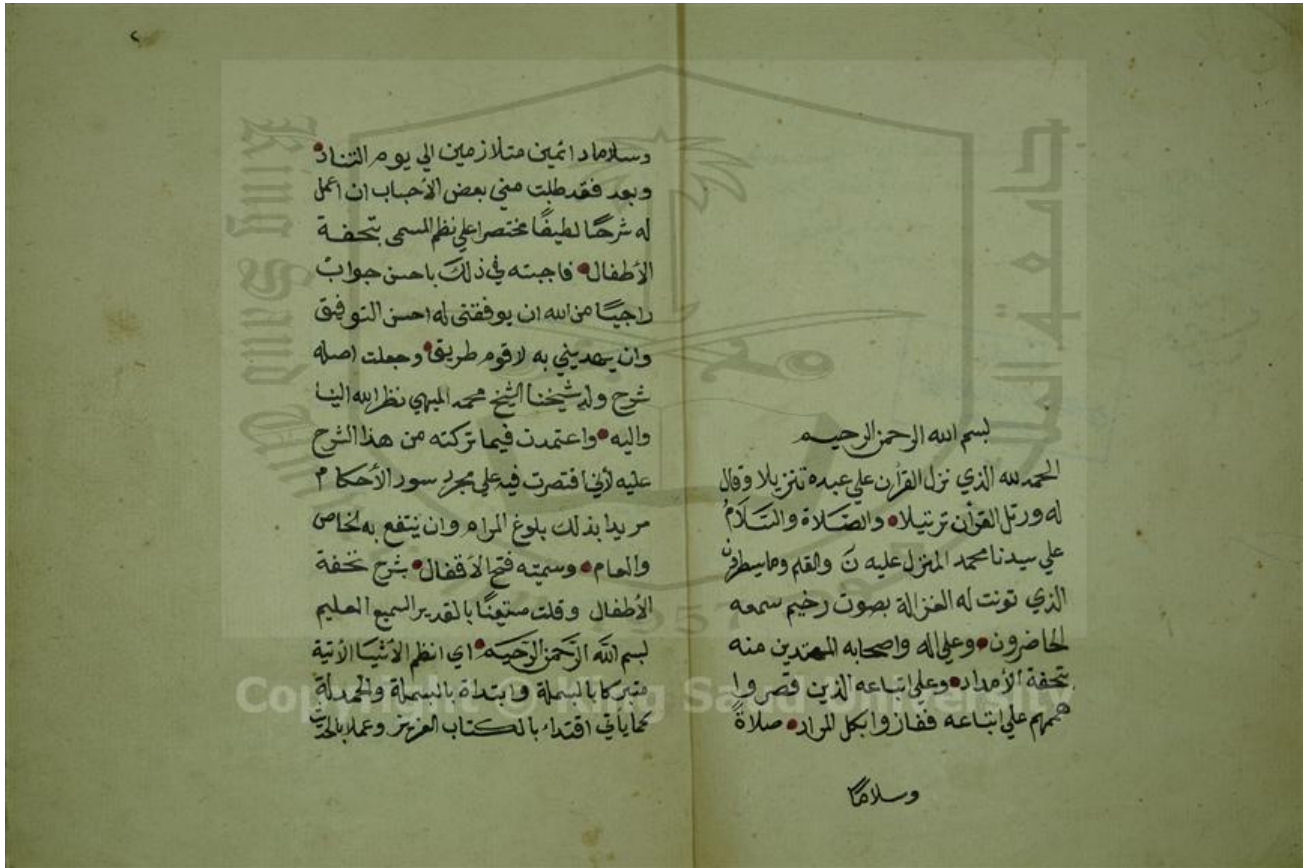 بسم الله الرحمن الرحيم
الحمد لله الذي نزل القرأن علي عبده تنزيلا وقال
له ورتل القرأن ترتيلا والصلاة والسلام
علي سيدنا محمد المنزل عليه نَ والقلم وما يسطرون
الذي تونت له الغزالة بصوت رخيم سمعه
الحاضرون وعلي اله واصحابه المهتدين منه
بتحفة الأمداد وعلي اتباعه الذين قصروا
هممهم علي اتباعه ففازوا بكل المراد صلاةً
وسلامًا
وسلاما دائمين متلازمين الي يوم التناد
وبعد فقد طلبت مني بعض الأحباب ان اعمل
له شرحًا لطيفًا مختصرا علي نظم المسمي بتحفة
الأطفال فاجبته في ذلك باحسن جواب
راجيًا من الله ان يوفقني له احسن التوفيق
وان يهديني به لاقوم طريق وجعلت اصله
شرح ولد شيخنا الشيخ محمد الميهي نظر الله الينا
واليه واعتمدت فيما تركته من هذا الشرح
عليه لأني اقتصرت فيه علي مجرد سور الأحكام
مريدا بذلك بلوغ المرام وان ينتفع به الخاص
والعام وسميته فتح الأقفال بشرح تحفة
الأطفال وقلت مستعينًا بالقدير السميع العليم
بسم الله الرَّحمن الرَّحيم اي انظم الأشيا الأتية
متبركا بالبسملة وابتداة بالبسملة والحمدلة
كما يأتي اقتداء بالكتاب العزيز وعملا بالحديث
٢
King Saud University
جامعة الملك
1957
Copyright © King Saud University